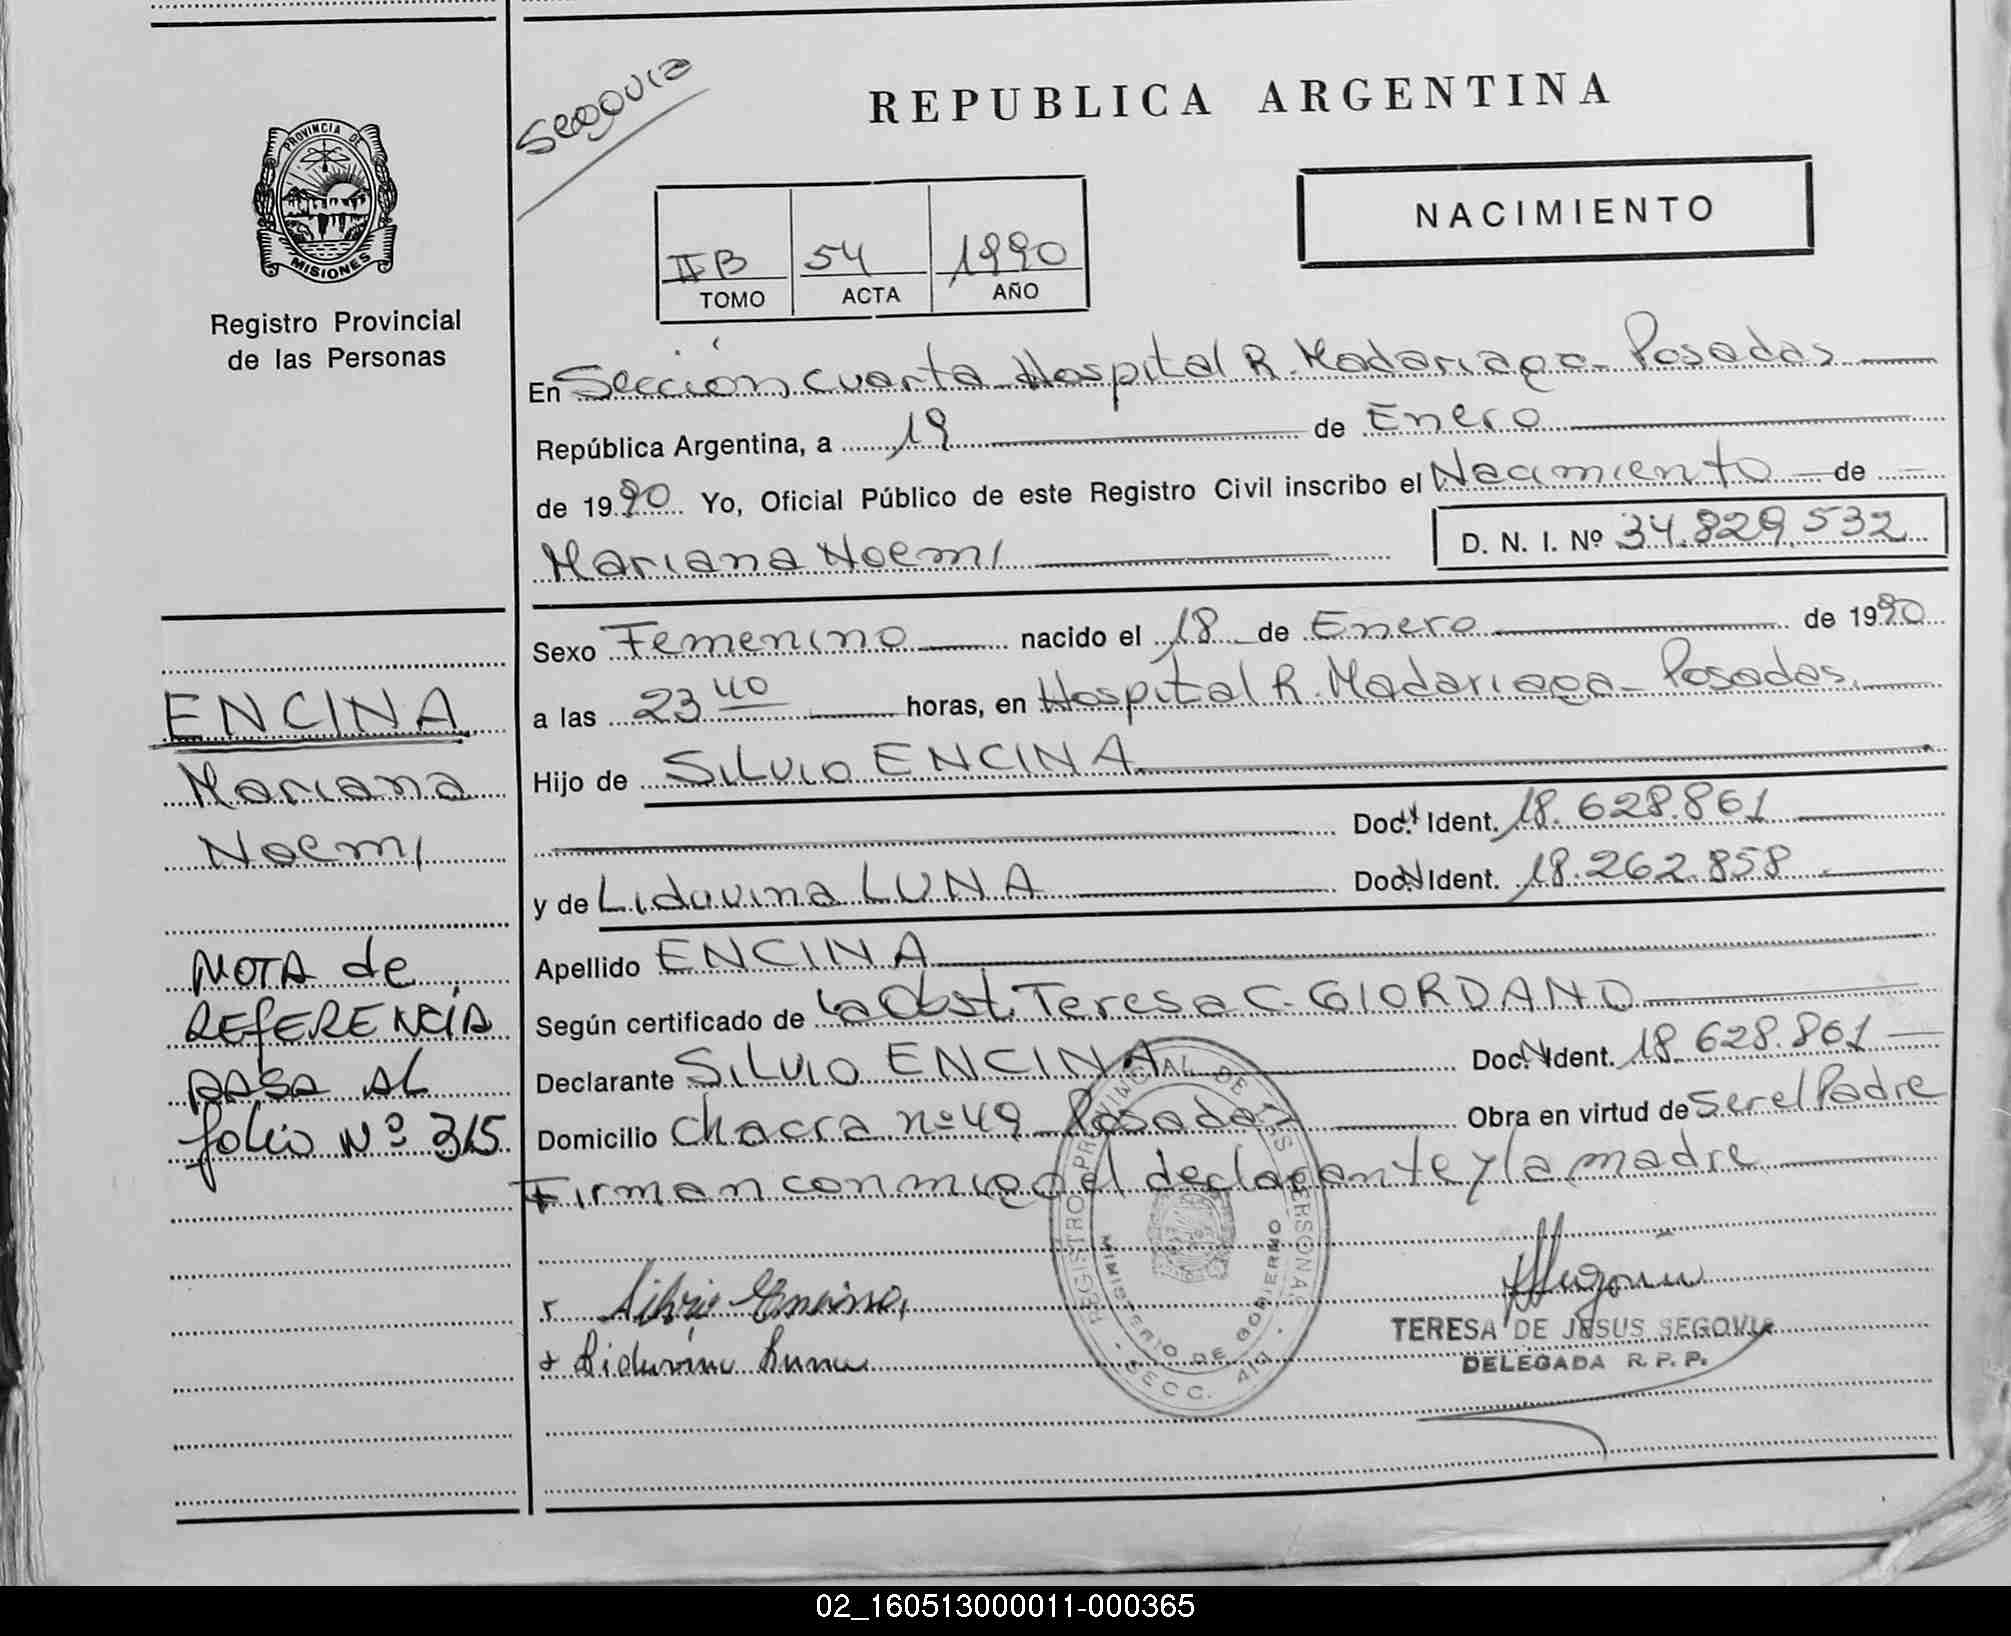 Segovia
REPUBLICA ARGENTINA
PROVINCIA DE
MISIONES
Registro Provincial
de las Personas
NACIMIENTO
II B 54 1990
TOMO ACTA AÑO
En Sección cuarta Hospital R. Madariaga - Posadas
República Argentina, a 19 de Enero
de 1990 Yo, Oficial Público de este Registro Civil inscribo el Nacimiento de
Mariana Noemi D. N. I. Nº 34.829.532
Sexo Femenino nacido el 18 de Enero de 1990
a las 23 40 horas, en Hospital R. Madariaga - Posadas.
Hijo de Silvio ENCINA
Doc. N Ident. 18.628.861
y de Liduvina LUNA Doc. N Ident. 18.262.858
Apellido ENCINA
Según certificado de la Obst. Teresa C. GIORDANO
Declarante Silvio ENCINA Doc. N Ident. 18.628.861
Domicilio Chacra nº 49 Posadas Obra en virtud de ser el Padre
Firman conmigo el declarante y la madre
Silvio Encina
Liduvina Luna
TERESA DE JESUS SEGOVIA
DELEGADA R. P. P.
REGISTRO PROVINCIAL DE LAS PERSONAS
MINISTERIO DE GOBIERNO
SECC. 4ta
ENCINA
Mariana
Noemi
NOTA de
REFERENCIA
PASA AL
folio Nº 315
02_160513000011-000365